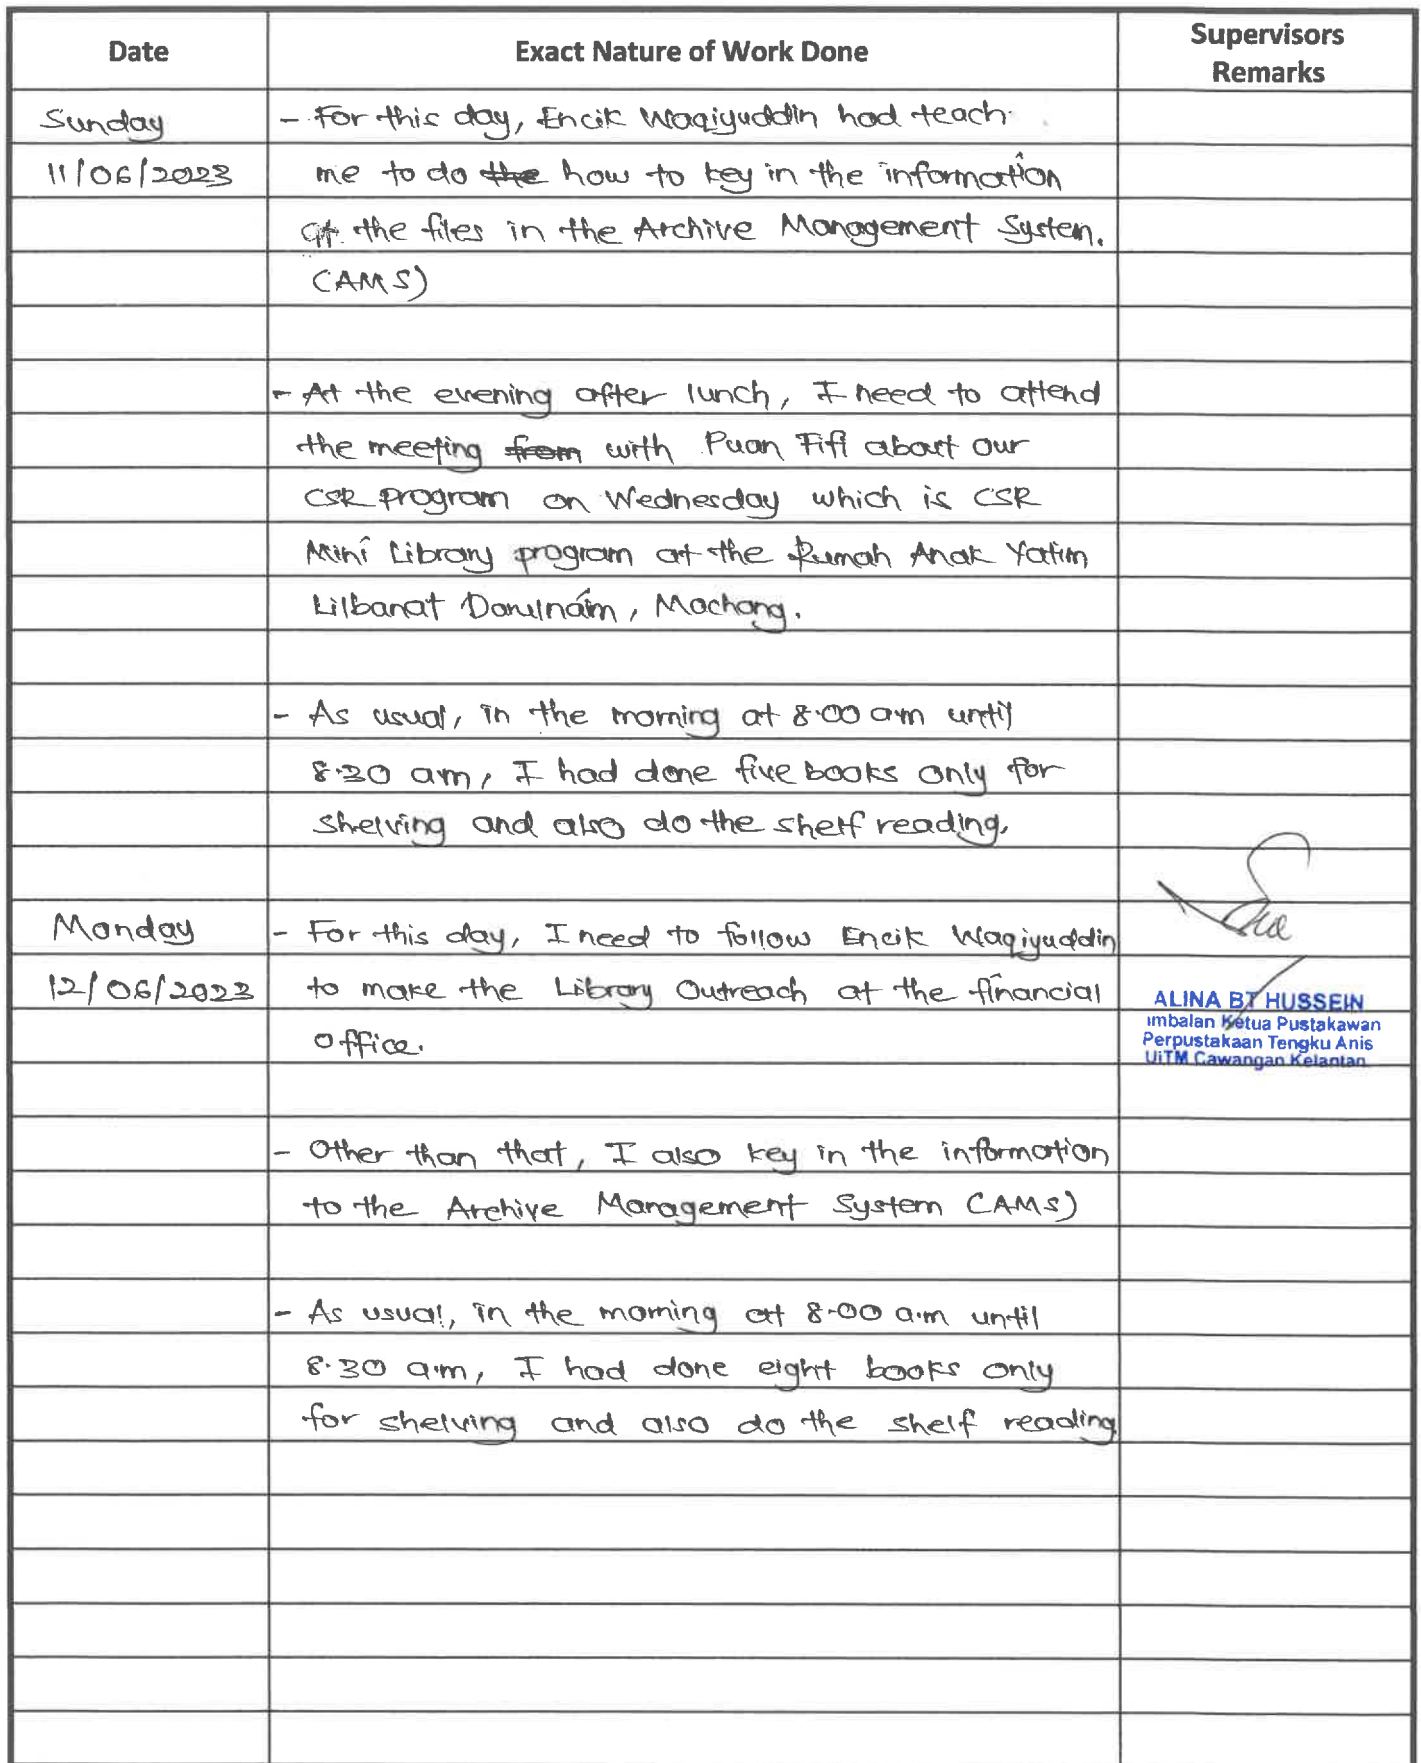 Date
Exact Nature of Work Done
Supervisors
Remarks
Sunday
- For this day, Encik Waqiyuddin had teach
11/06/2023
me to do the how to key in the information
at the files in the Archive Management System.
(AMS)
- At the evening after lunch, I need to attend
the meeting from with Puan Fifi about our
CSR program on Wednesday which is CSR
Mini Library program at the Rumah Anak Yatim
Lilbanat Darulnáim, Machang.
- As usual, in the morning at 8.00 am until
8.30 am, I had done five books only for
shelving and also do the shelf reading.
Monday
- For this day, I need to follow Encik Waqiyuddin
12/06/2023
to make the Library Outreach at the financial
office.
ALINA BT HUSSEIN
imbalan Ketua Pustakawan
Perpustakaan Tengku Anis
UiTM Cawangan Kelantan
- Other than that, I also key in the information
to the Archive Management System (AMS)
- As usual, in the morning at 8.00 a.m until
8.30 a.m, I had done eight books only
for shelving and also do the shelf reading.